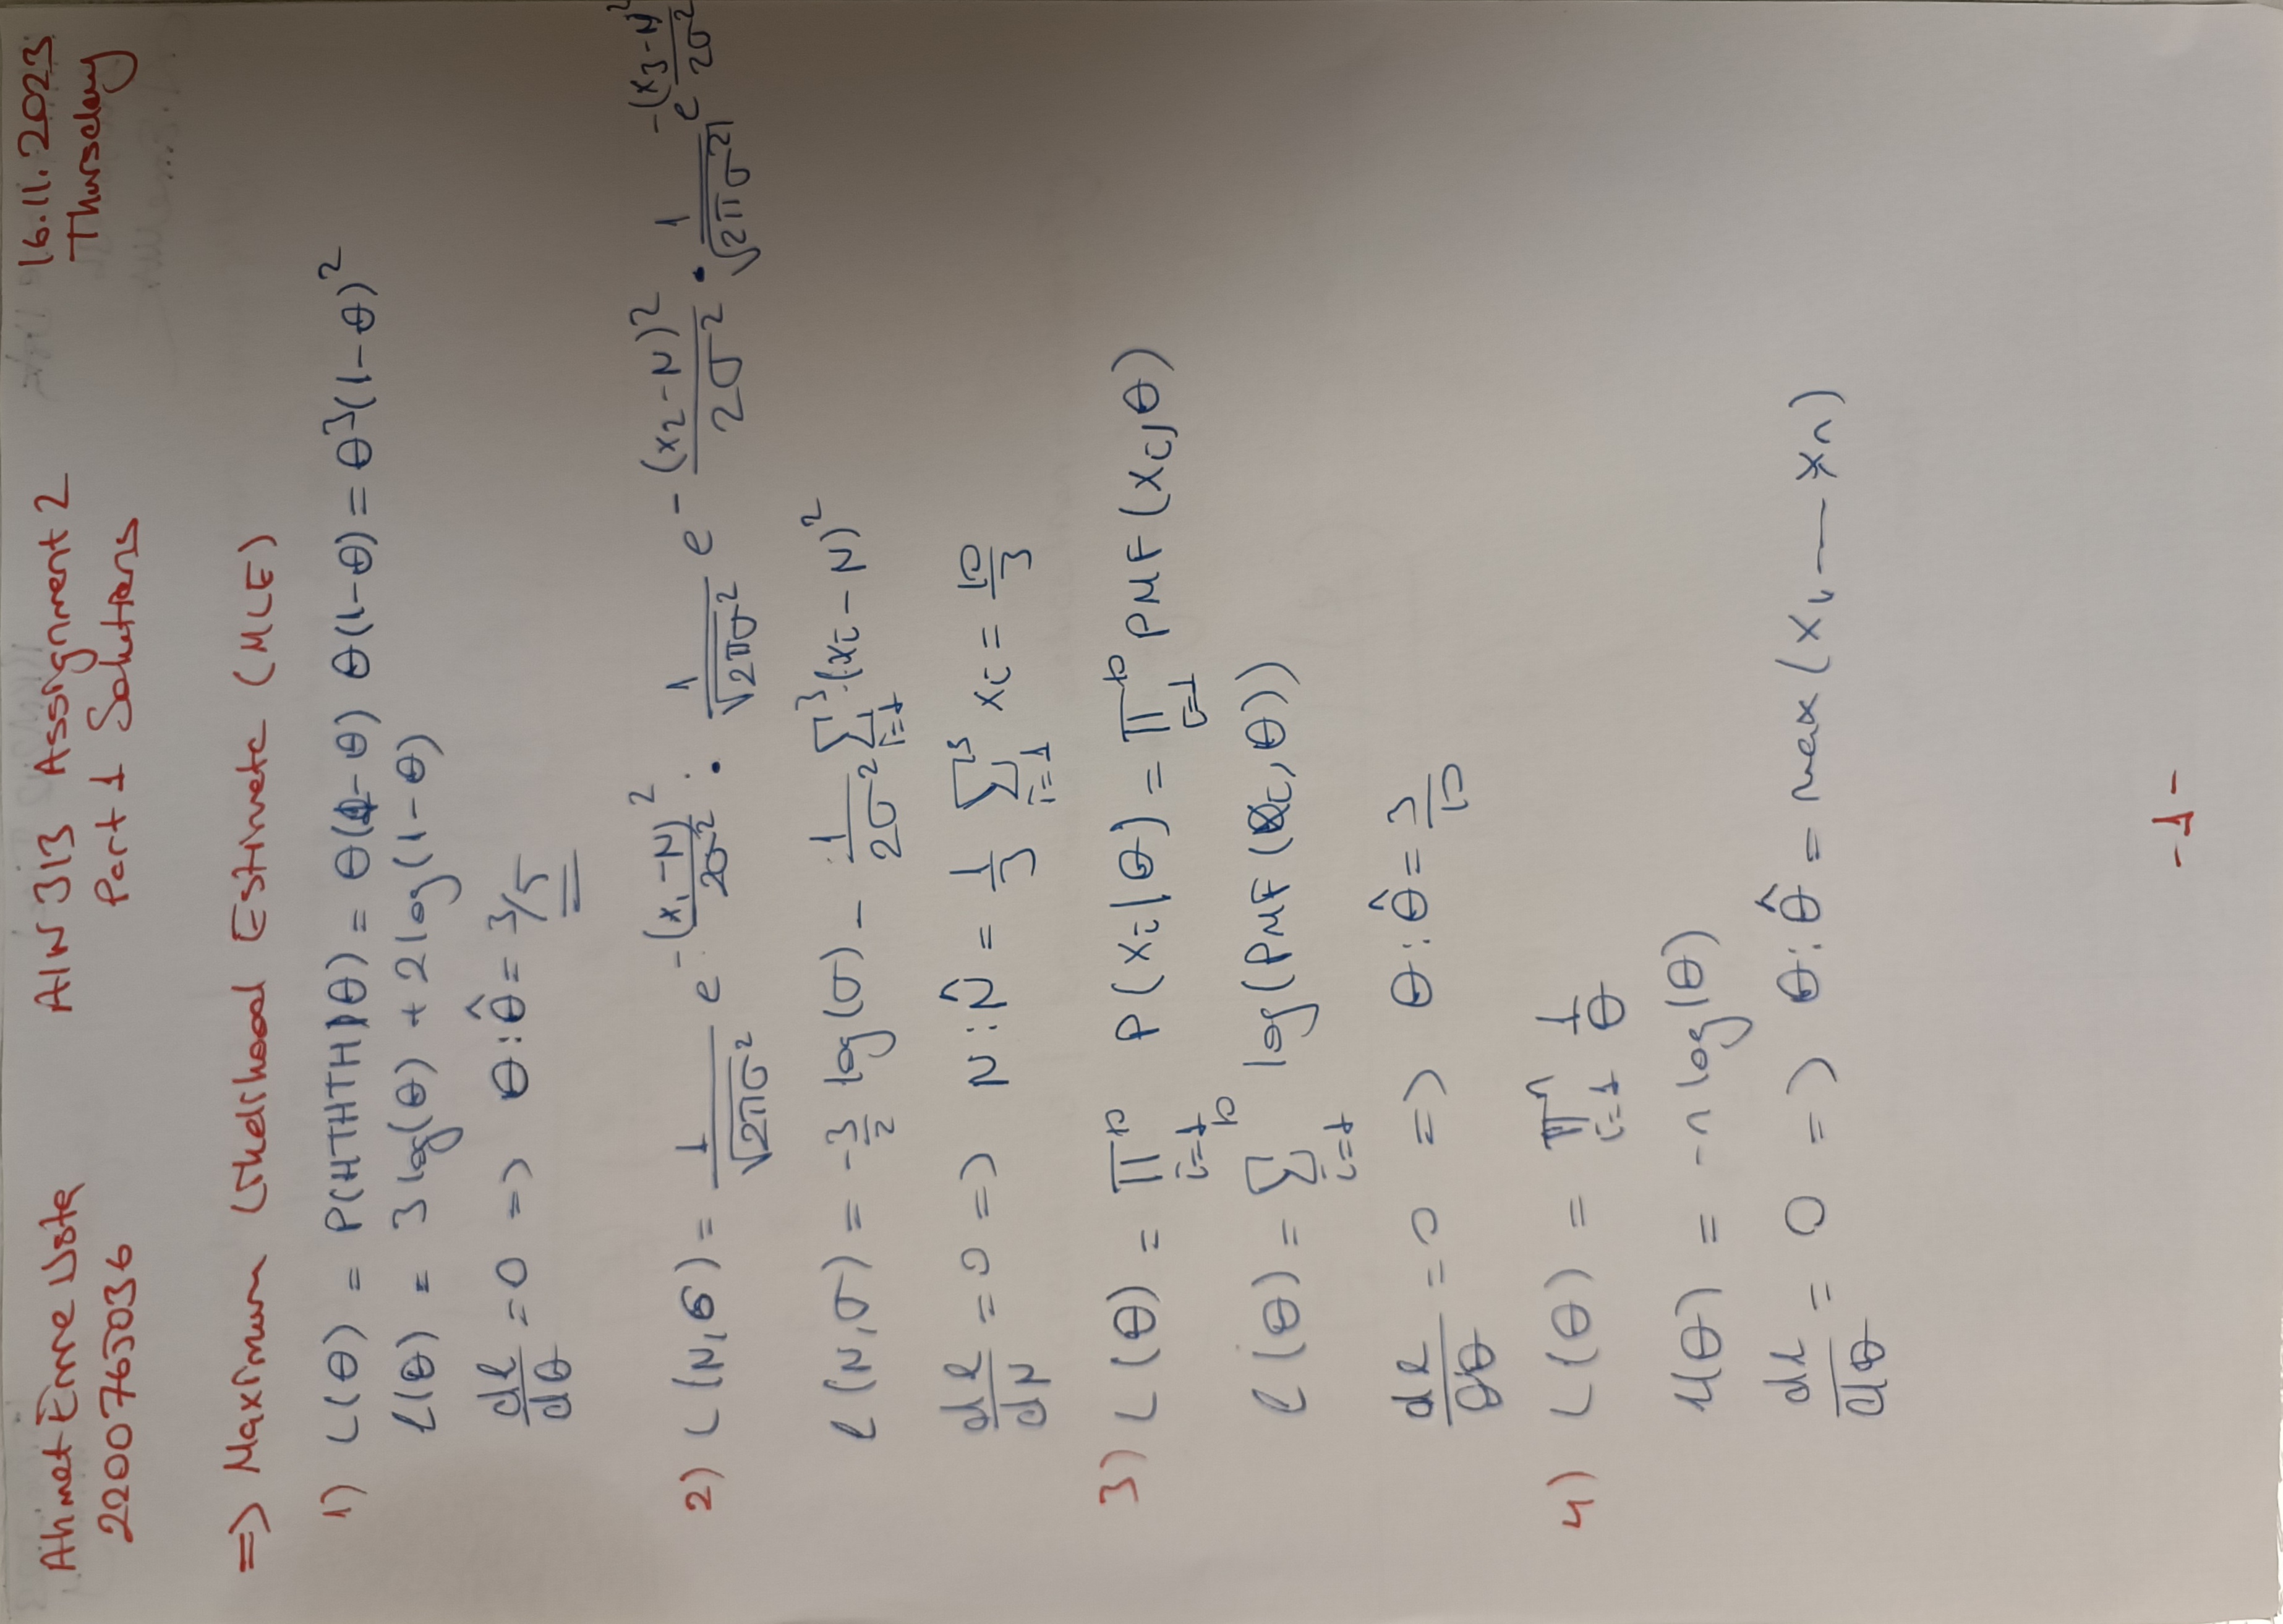 Ahmet Emre Usta AIN 313 Assignment 2 16.11.2023
2200765036 Part 1 Solutions Thursday
=> Maximum Likelihood Estimate (MLE)
1) L(θ) = P(HTHTH|θ) = θ(1-θ) θ(1-θ) = θ³(1-θ)²
ℓ(θ) = 3 log(θ) + 2 log(1-θ)
dℓ/dθ = 0 => θ: θ̂ = 3/5
2) L(N,σ) = 1/√(2πσ²) e^-(x₁-N)²/2σ² · 1/√(2πσ²) e^-(x₂-N)²/2σ² · 1/√(2πσ²) e^-(x₃-N)²/2σ²
ℓ(N,σ) = -3/2 log(σ) - 1/2σ² ∑_{i=1}^{3} (xᵢ-N)²
dℓ/dN = 0 => N: N̂ = 1/3 ∑_{i=1}^{3} xᵢ = 10/3
3) L(θ) = ∏_{i=1}^{10} P(xᵢ|θ) = ∏_{i=1}^{10} PMF(xᵢ,θ)
ℓ(θ) = ∑_{i=1}^{10} log(PMF(xᵢ,θ))
dℓ/dθ = 0 => θ: θ̂ = 3/10
4) L(θ) = ∏_{i=1}^{n} 1/θ
ℓ(θ) = -n log(θ)
dℓ/dθ = 0 => θ: θ̂ = max(x₁, — xn)
-1-